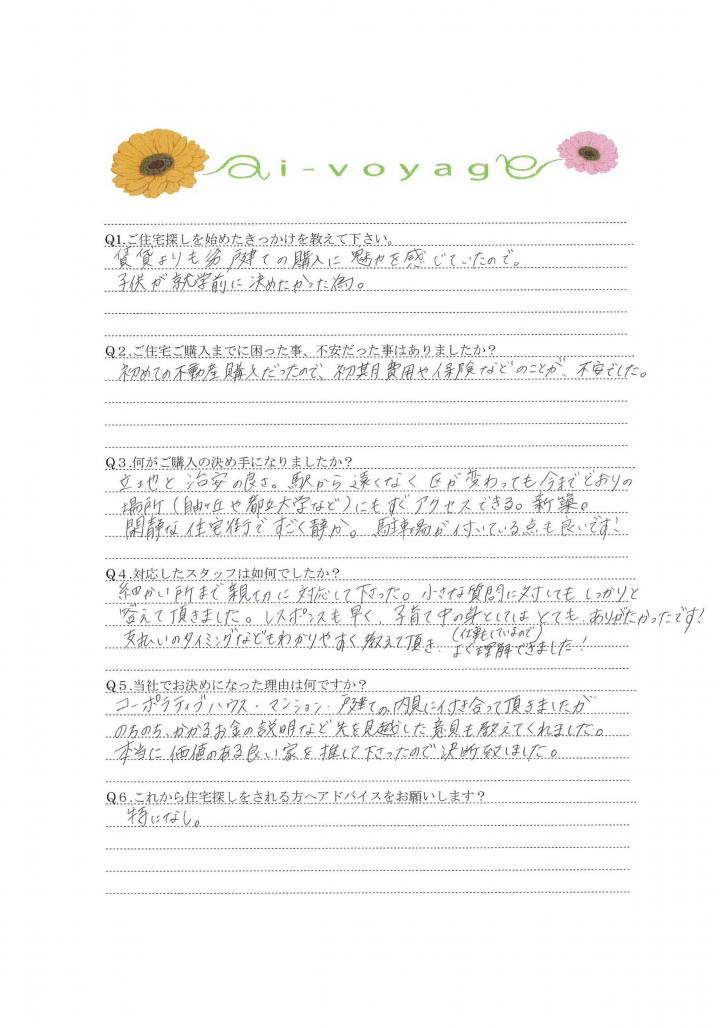 ai-voyage
Q1.ご住宅探しを始めたきっかけを教えて下さい。
賃貸よりも 戸建ての購入に魅力を感じていたので。
子供が就学前に決めたかった為。
Q2.ご住宅ご購入までに困った事、不安だった事はありましたか？
初めての不動産購入だったので、初期費用や保険などのことが、不安でした。
Q3.何がご購入の決め手になりましたか？
立地と治安の良さ。駅から遠くなく区が変わっても今までどおりの
場所（自由ヶ丘や都立大学など）にもすぐアクセスできる。新築。
閑静な住宅街ですごく静か。駐車場が付いている点も良いです！
Q4.対応したスタッフは如何でしたか？
細かい所まで親切に対応して下さった。小さな質問に対してもしっかりと
答えて頂きました。レスポンスも早く、子育て中の身としてはとても、ありがたかったです！
支払いのタイミングなどもわかりやすく教えて頂き、（仕事もしているので）よく理解できました！
Q5.当社でお決めになった理由は何ですか？
コーポラティブハウス・マンション・戸建ての内見に付き合って頂きましたが
のちのち、かかるお金の説明など先を見越した意見も教えてくれました。
本当に価値のある良い家を推して下さったので決断致しました。
Q6.これから住宅探しをされる方へアドバイスをお願いします？
特になし。